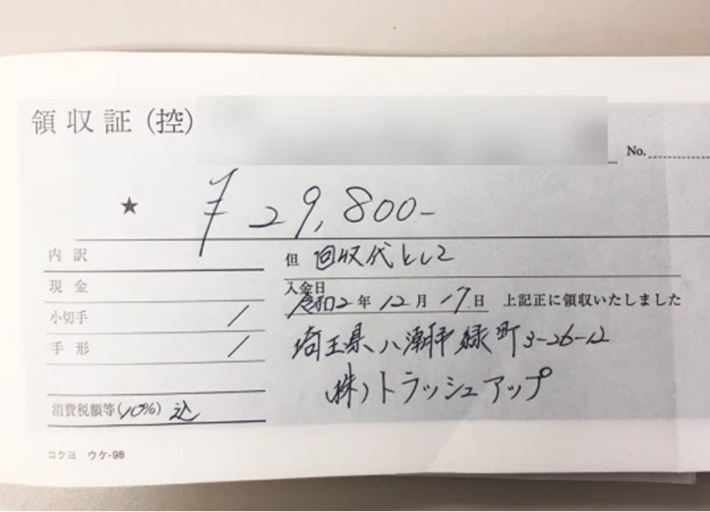 領収証（控）
No.
★ ¥29,800-
内訳
但 回収代として
現金
入金日
令和2年12月17日 上記正に領収いたしました
小切手 /
手形 /
埼玉県八潮市緑町3-26-12
(株)トラッシュアップ
消費税額等(10%) 込
コクヨ ウケ-98